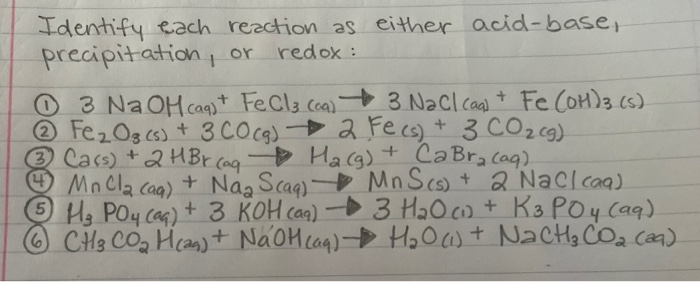 Identify each reaction as either acid-base,
precipitation, or redox:
① 3 NaOH (aq) + FeCl3 (aq) → 3 NaCl (aq) + Fe(OH)3 (s)
② Fe2O3 (s) + 3 CO (g) → 2 Fe (s) + 3 CO2 (g)
③ Ca (s) + 2 HBr (aq → H2 (g) + CaBr2 (aq)
④ MnCl2 (aq) + Na2S (aq) → MnS (s) + 2 NaCl (aq)
⑤ H3PO4 (aq) + 3 KOH (aq) → 3 H2O (l) + K3PO4 (aq)
⑥ CH3CO2H (aq) + NaOH (aq) → H2O (l) + NaCH3CO2 (aq)